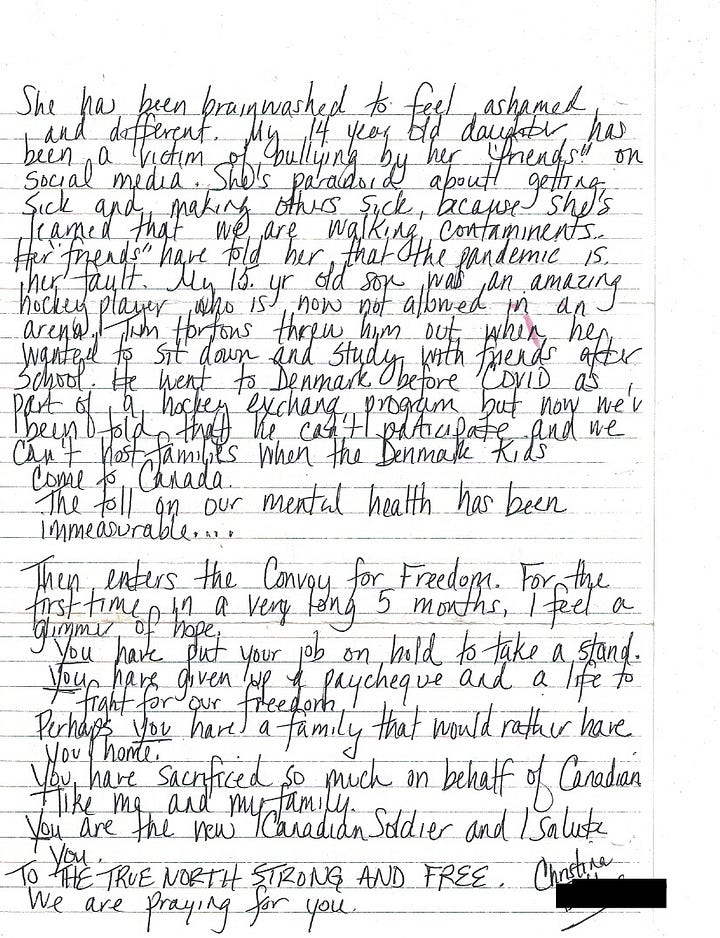 She has been brainwashed to feel ashamed
and different. My 14 year old daughter has
been a victim of bullying by her "friends" on
social media. She's paradoid about getting
sick and making others sick, because she's
learned that we are walking contaminents.
Her "friends" have told her that the pandemic is
her fault. My 15 yr old son was an amazing
hockey player who is now not allowed in an
arena. Tim Hortons threw him out when he
wanted to sit down and study with friends after
school. He went to Denmark before COVID as
part of a hockey exchang program but now we'v
been told that he can't participate and we
can't host families when the Denmark kids
come to Canada.
The toll on our mental health has been
immeasurable....
Then enters the Convoy for Freedom. For the
first time in a very long 5 months, I feel a
glimmer of hope.
You have put your job on hold to take a stand.
You have given up a paycheque and a life to
fight for our freedom
Perhaps you have a family that would rather have
you home.
You have sacrificed so much on behalf of Canadian
like me and my family.
You are the new Canadian Soldier and I salute
you.
TO THE TRUE NORTH STRONG AND FREE. Christina
We are praying for you.